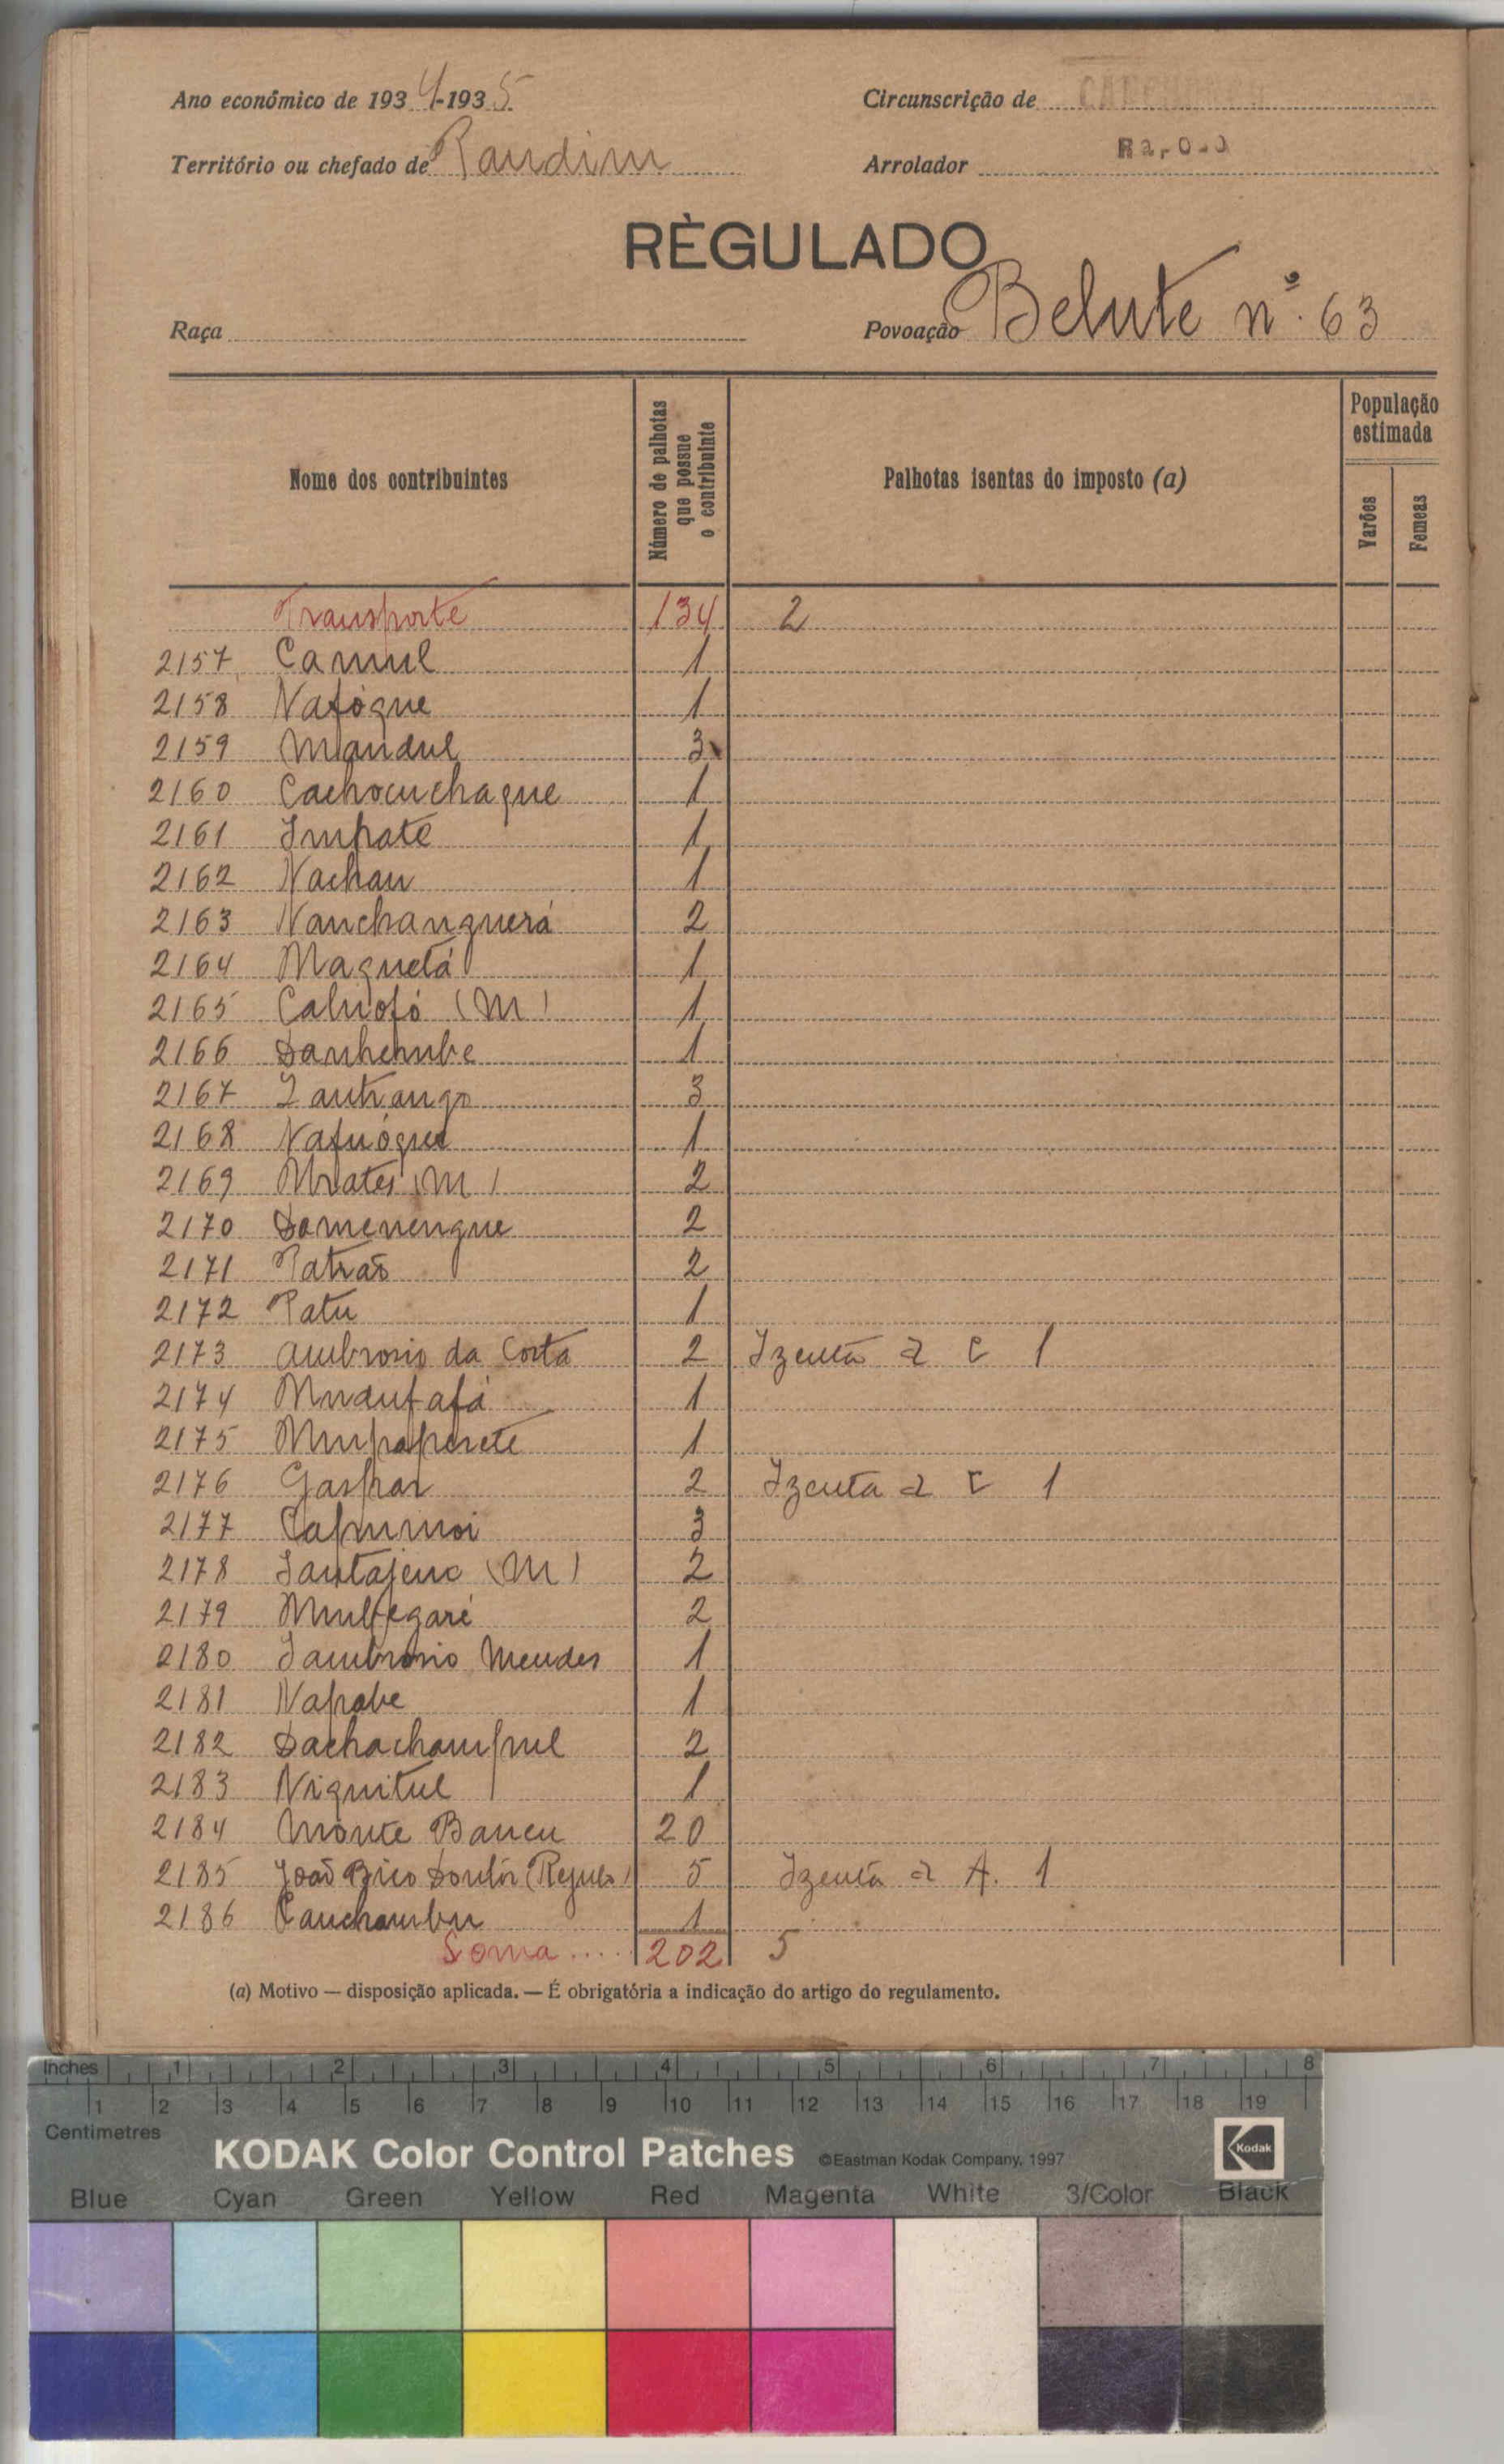 Ano económico de 1934-1935
Circunscrição de
Território ou chefado de Pandim
Arrolador
RÈGULADO
Raça
Povoação Belute nº. 63
Nome dos contribuintes
Número de palhotas que possue o contribuinte
Palhotas isentas do imposto (a)
População estimada
Varões
Femeas
Transporte 134 2
2157 Camul 1
2158 Nafógue 1
2159 Mandul 3
2160 Cachocuchaque 1
2161 Impate 1
2162 Nachau 1
2163 Nanchanguerá 2
2164 Maguetá 1
2165 Caluofó (M) 1
2166 1
2167 3
2168 Nafuógue 1
2169 (M) 2
2170 Domenengue 2
2171 Patrão 2
2172 Patu 1
2173 Ambrosio da Costa 2 Izenta a C 1
2174 1
2175 1
2176 Gaspar 2 Izenta a C 1
2177 3
2178 (M) 2
2179 2
2180 Jambrosio Mendes 1
2181 Napabe 1
2182 Dachachampul 2
2183 Niquitul 1
2184 20
2185 João Bico (Regulo) 5 Izenta a A. 1
2186 Cauchambu 1
Soma .... 202 5
(a) Motivo — disposição aplicada. — É obrigatória a indicação do artigo do regulamento.
Inches 1 2 3 4 5 6 7 8
1 2 3 4 5 6 7 8 9 10 11 12 13 14 15 16 17 18 19
Centimetres
KODAK Color Control Patches ©Eastman Kodak Company, 1997 Kodak
Blue Cyan Green Yellow Red Magenta White 3/Color Black